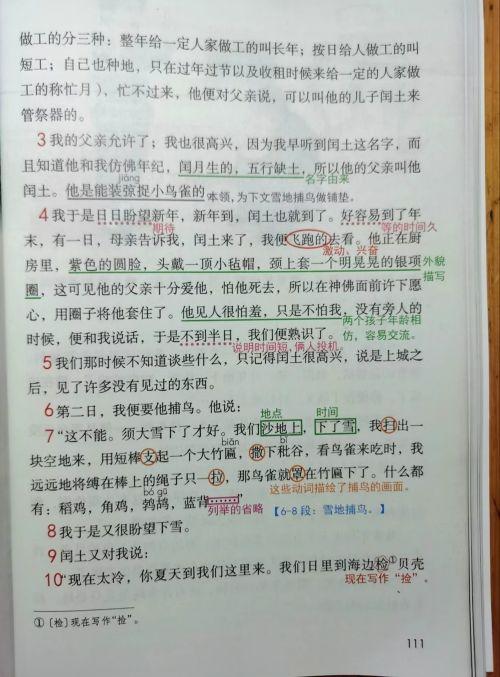 做工的分三种：整年给一定人家做工的叫长年；按日给人做工的叫
短工；自己也种地，只在过年过节以及收租时候来给一定的人家做
工的称忙月），忙不过来，他便对父亲说，可以叫他的儿子闰土来
管祭器的。
3 我的父亲允许了；我也很高兴，因为我早听到闰土这名字，而
且知道他和我仿佛年纪，闰月生的，五行缺土，所以他的父亲叫他
名字由来
jiāng
闰土。他是能装弶捉小鸟雀的
本领，为下文雪地捕鸟做铺垫。
4 我于是日日盼望新年，新年到，闰土也就到了。好容易到了年
期待
等的时间久
末，有一日，母亲告诉我，闰土来了，我便飞跑的去看。他正在厨
激动、兴奋
房里，紫色的圆脸，头戴一顶小毡帽，颈上套一个明晃晃的银项
外貌
圈，这可见他的父亲十分爱他，怕他死去，所以在神佛面前许下愿
描写
心，用圈子将他套住了。他见人很怕羞，只是不怕我，没有旁人的
时候，便和我说话，于是不到半日，我们便熟识了。
两个孩子年龄相
仿，容易交流。
说明时间短，俩人投机。
5 我们那时候不知道谈些什么，只记得闰土很高兴，说是上城之
后，见了许多没有见过的东西。
6 第二日，我便要他捕鸟。他说：
地点 时间
7 “这不能。须大雪下了才好。我们沙地上，下了雪，我扫出一
biǎn bǐ
块空地来，用短棒支起一个大竹匾，撒下秕谷，看鸟雀来吃时，我
远远地将缚在棒上的绳子只一拉，那鸟雀就罩在竹匾下了。什么都
这些动词描绘了捕鸟的画面。
bó gū
有：稻鸡，角鸡，鹁鸪，蓝背……”
列举的省略
【6-8段：雪地捕鸟。】
8 我于是又很盼望下雪。
9 闰土又对我说：
10 “现在太冷，你夏天到我们这里来。我们日里到海边检①贝壳
现在写作“捡”。
①〔检〕现在写作“捡”。
111